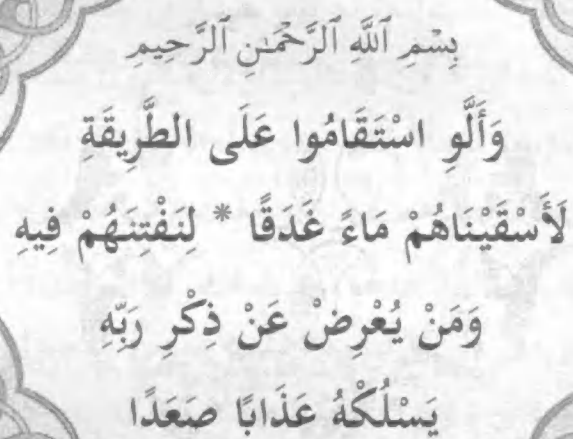 بِسْمِ ٱللَّهِ ٱلرَّحْمَٰنِ ٱلرَّحِيمِ
وَأَلَّوِ اسْتَقَامُوا عَلَى الطَّرِيقَةِ
لَأَسْقَيْنَاهُمْ مَاءً غَدَقًا * لِنَفْتِنَهُمْ فِيهِ
وَمَنْ يُعْرِضْ عَنْ ذِكْرِ رَبِّهِ
يَسْلُكْهُ عَذَابًا صَعَدًا